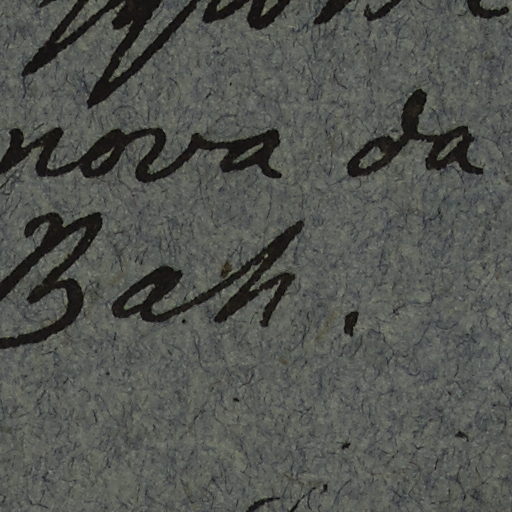 nova da
Bah.